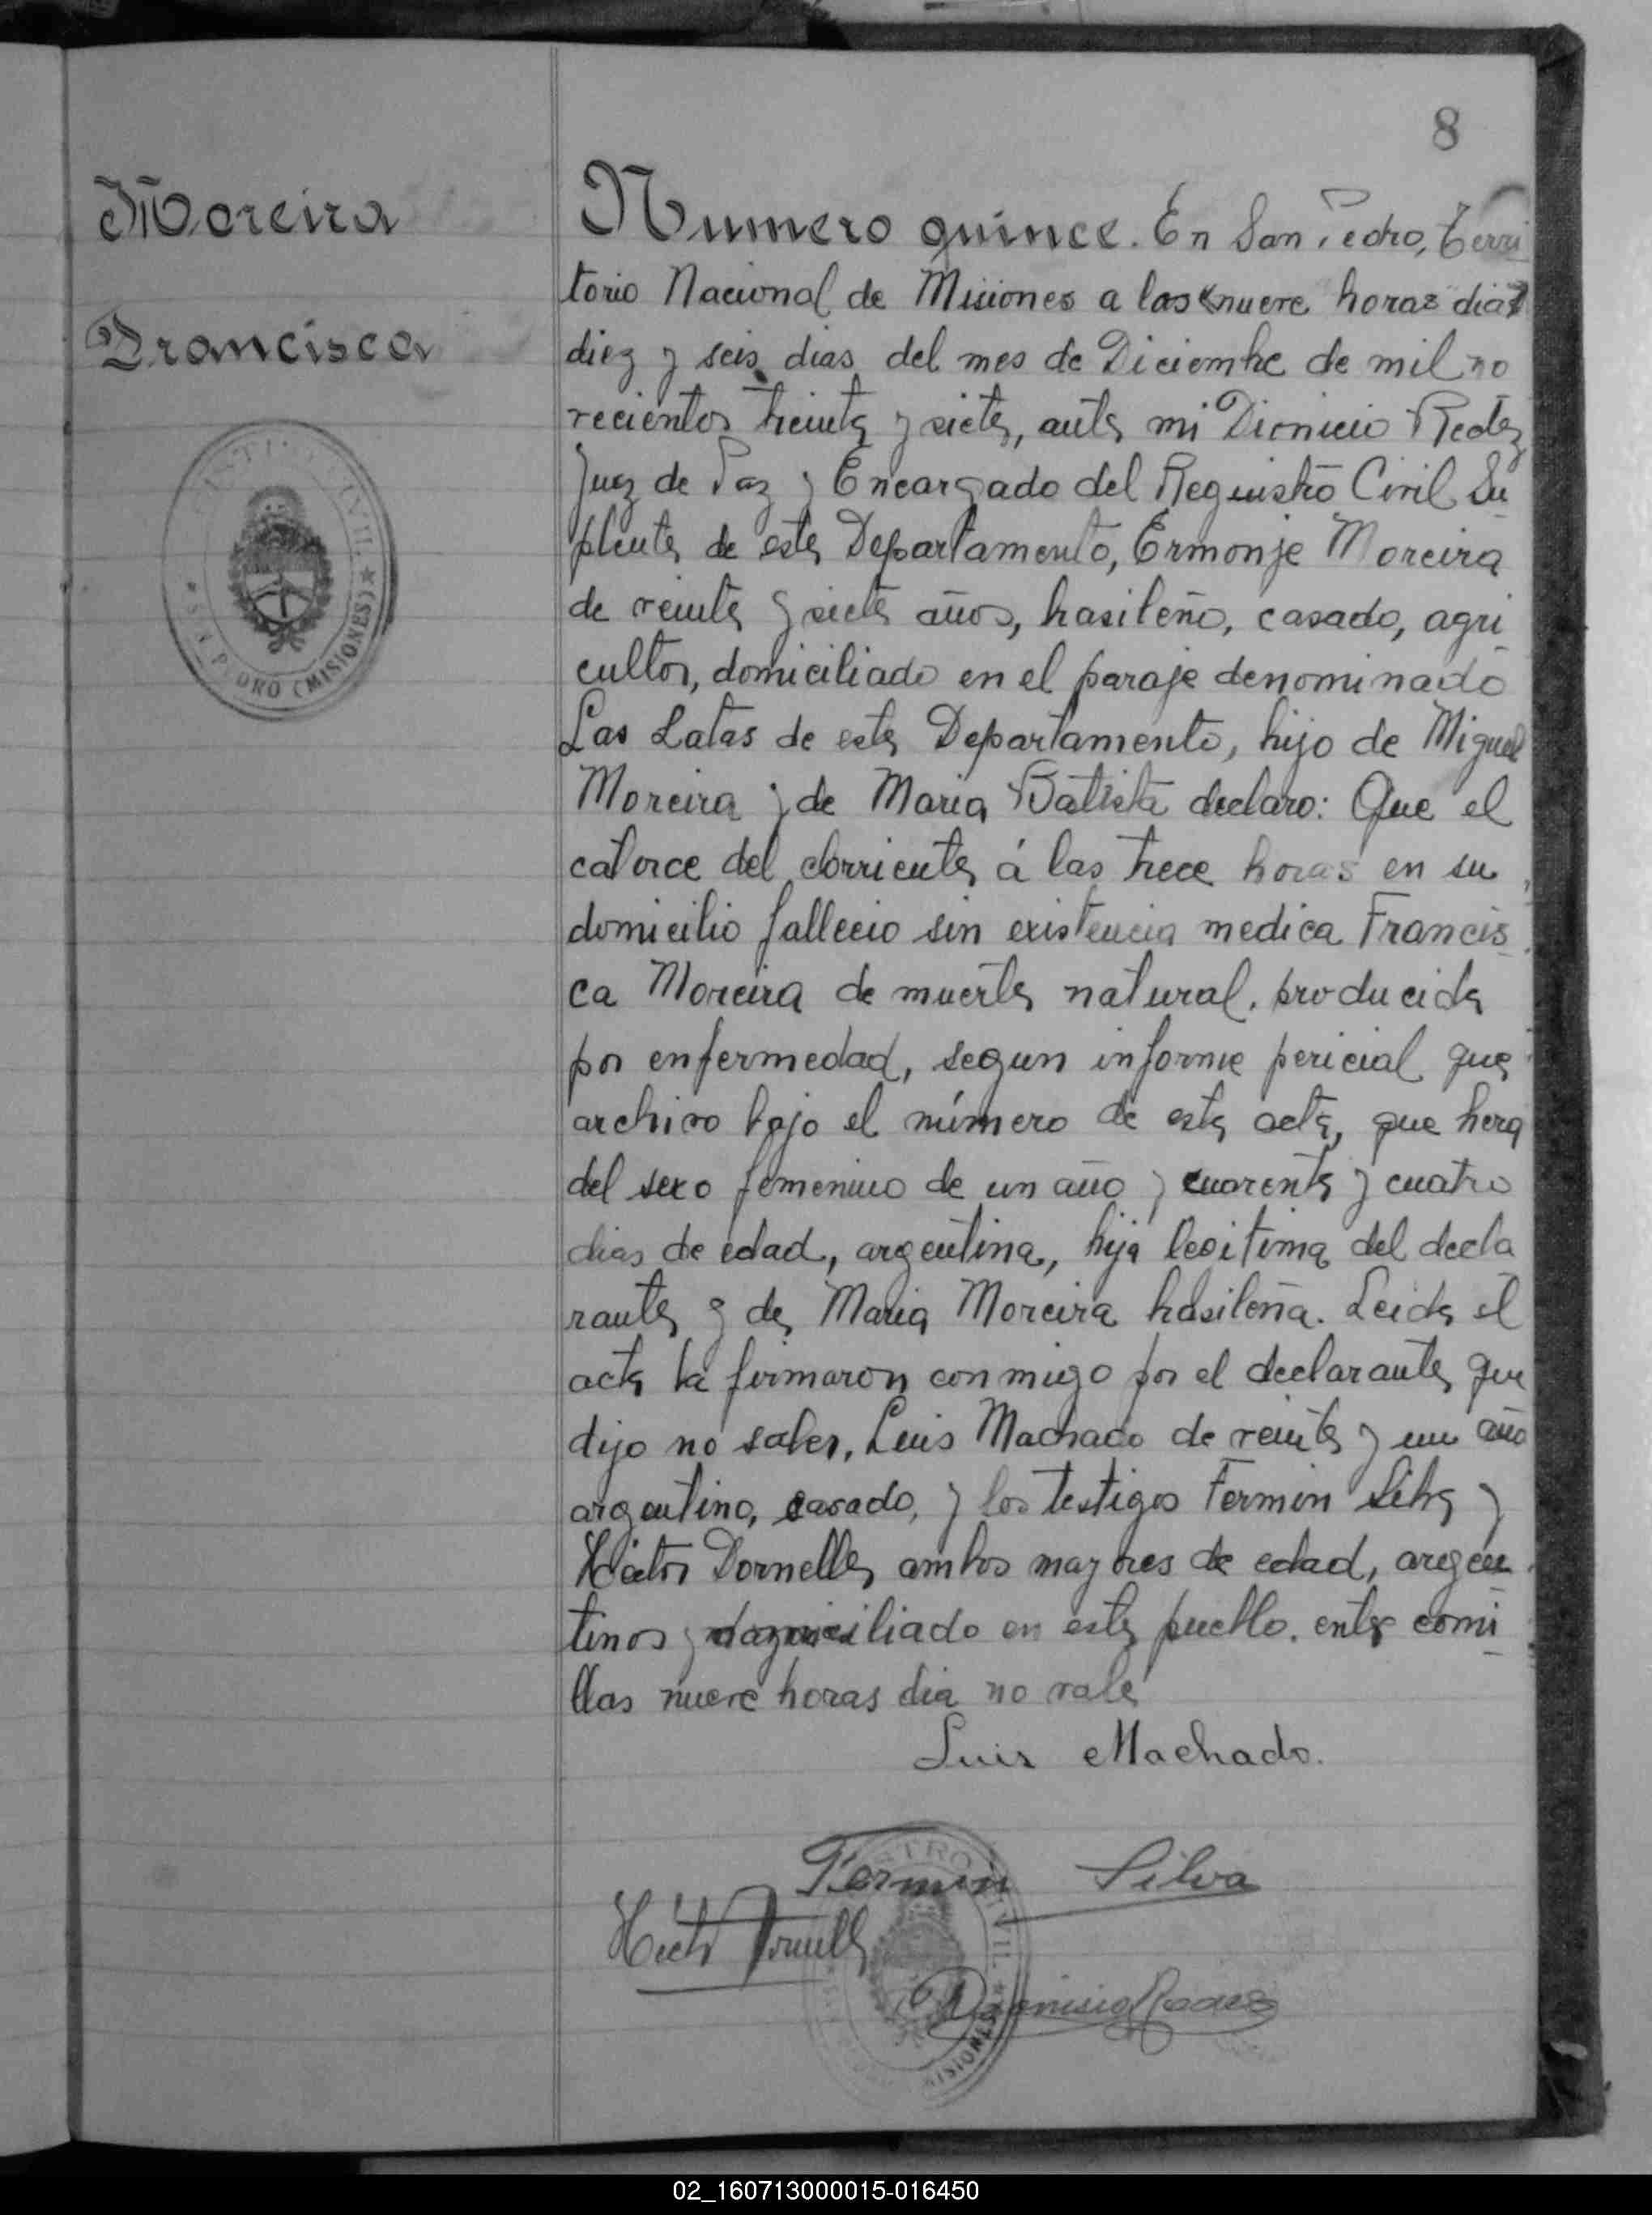 8
Moreira
Francisca
REGISTRO CIVIL
SN. PEDRO (MISIONES)
Numero quince. En San Pedro, Terri
torio Nacional de Misiones a las "nueve horas dia"
diez y seis dias del mes de Diciembre de mil no
vecientos treinta y siete, ante mi Dionicio
Juez de Paz y Encargado del Reguistro Civil Su
plente de este Departamento, Ermonje Moreira
de veinte y siete años, brasileño, casado, agri
cultor, domiciliado en el paraje denominado
Las Latas de este Departamento, hijo de Miguel
Moreira y de Maria Batista declaro: Que el
catorce del corriente á las trece horas en su
domicilio fallecio sin existencia medica Francis
ca Moreira de muerte natural, producida
por enfermedad, segun informe pericial que
archivo bajo el número de esta acta, que hera
del sexo femenino de un año y cuarenta y cuatro
dias de edad, argentina, hija legitima del decla
rante y de Maria Moreira brasileña. Leida el
acta la firmaron conmigo por el declarante que
dijo no saber, Luis Machado de veinte y un año
argentino, casado, y los testigos Fermin Silva y
Héctor Dornelles ambos mayores de edad, argen
tinos y domiciliado en este pueblo. entre comi
llas nueve horas dia no vale
Luis Machado.
Fermin Silva
Héctor Dornelles
Dionisio
STRO CIVIL
MISIONES
02_160713000015-016450